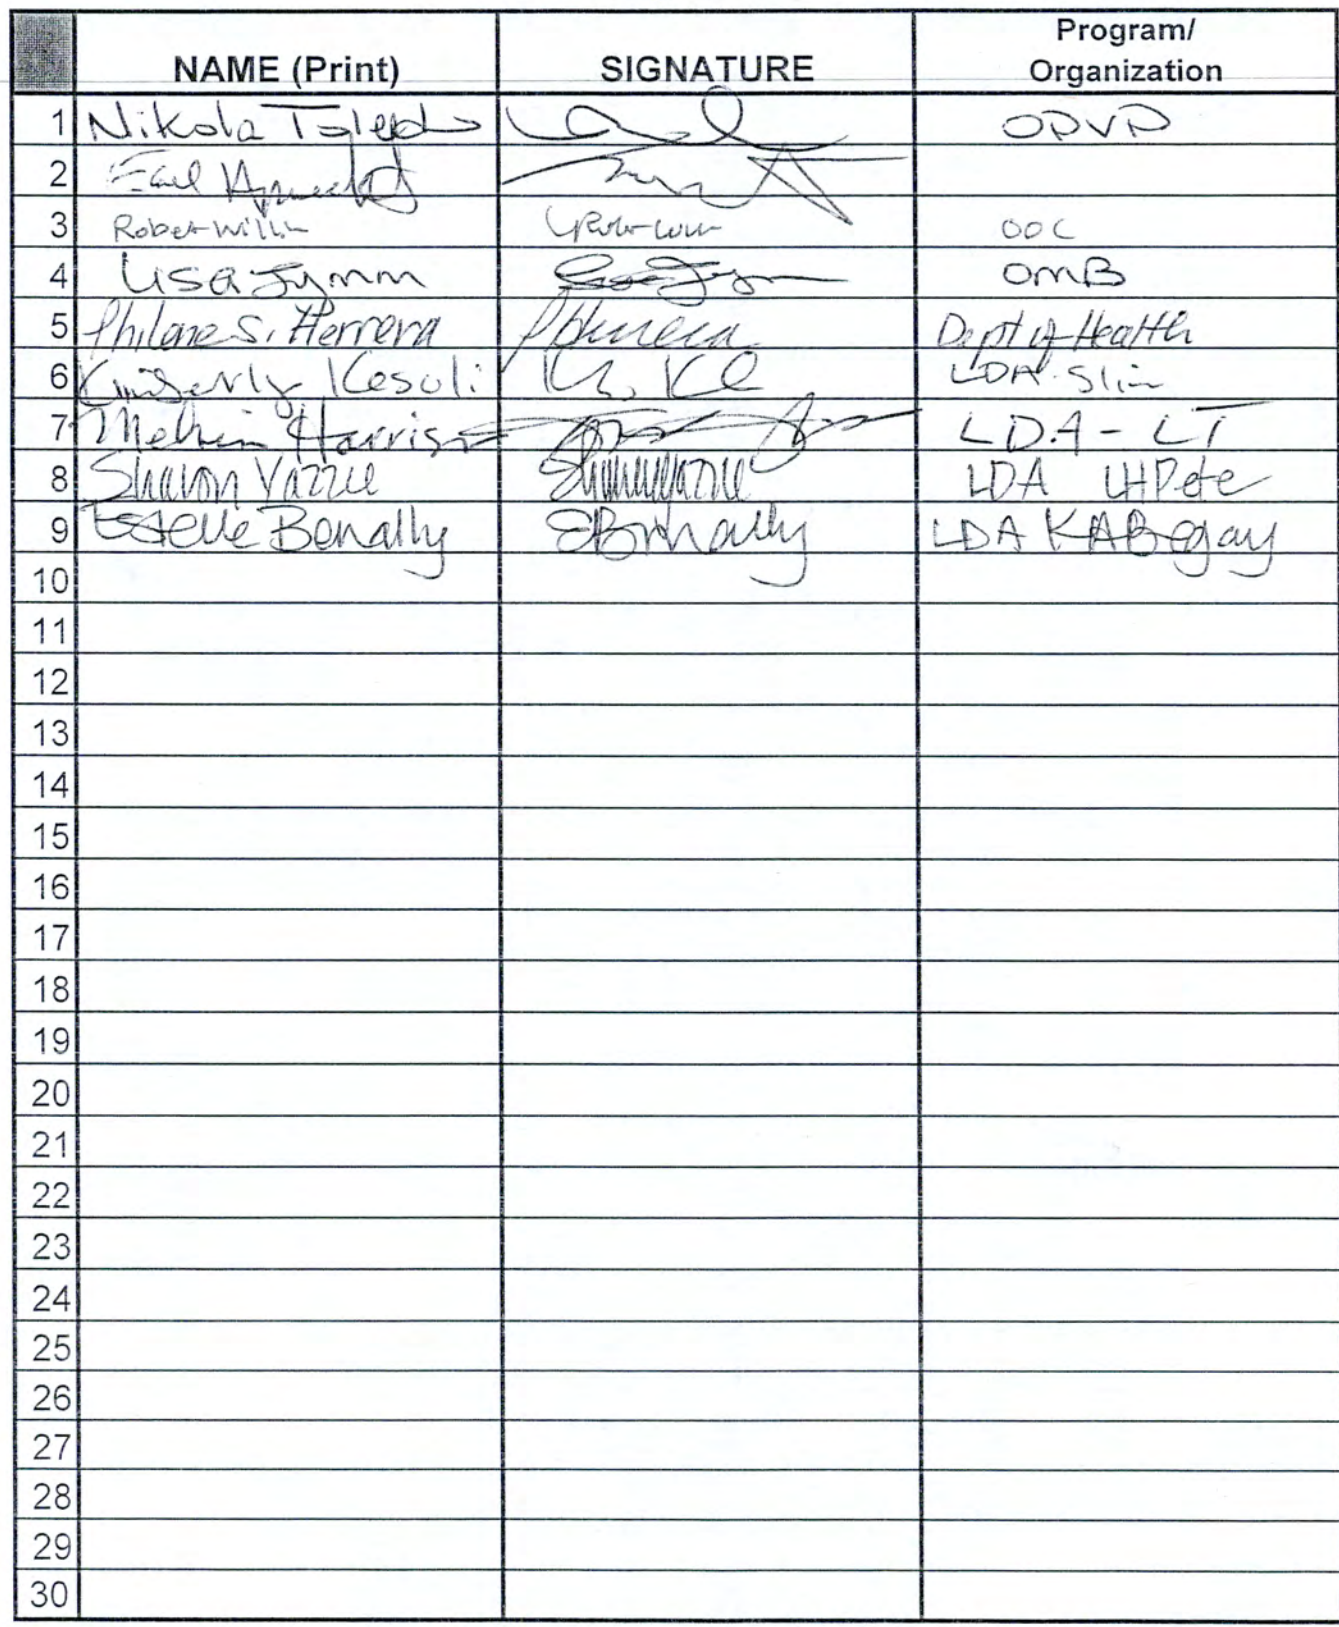 NAME (Print) SIGNATURE Program/
Organization
1 Nikola Toledo OPVP
2 Earl
3 Robert Willie OOC
4 Lisa Jymm Lisa Jymm OMB
5 Philene S. Herrera PHerrera Dept of Health
6 Kimberly Kesoli K. Ke LDA-Slim
7 Melvin Harrison LDA-LT
8 Sharon Yazzie Sharon Yazzie LDA LHPete
9 Estelle Benally EBenally LDA KABegay
10
11
12
13
14
15
16
17
18
19
20
21
22
23
24
25
26
27
28
29
30